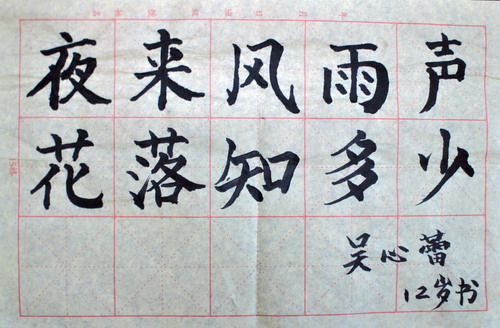 夜来风雨声
花落知多少
吴心蕾
12岁书